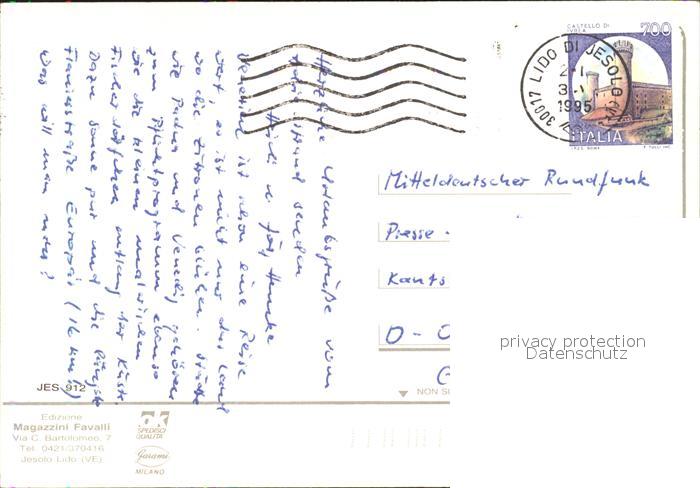 Herzliche Urlaubsgrüße vom
Adriastrand senden
Heidi u. Jörg Hencke
Venetien ist schon eine Reise
wert, es ist nicht nur das Land
wo die Zitronen blühen. Städte
wie Padua und Venedig gehören
zum Pflichtprogramm ebenso
wie die kleinen malerischen
Fischerdörfchen entlang der Küste.
Dazu Sonne pur und die längste
Flaniermeile Europas (14 km)
Was will man mehr?
JES 912
Edizione
Magazzini Favalli
Via C. Bartolomeo, 7
Tel. 0421/370416
Jesolo Lido (VE)
SPEDISCI
QUALITÀ
Garami
MILANO
CASTELLO DI
IVREA
700
ITALIA
30017 LIDO DI JESOLO (VE)
2-1
1995
Mitteldeutscher Rundfunk
Presse -
Kants
O-
NON S
privacy protection
Datenschutz